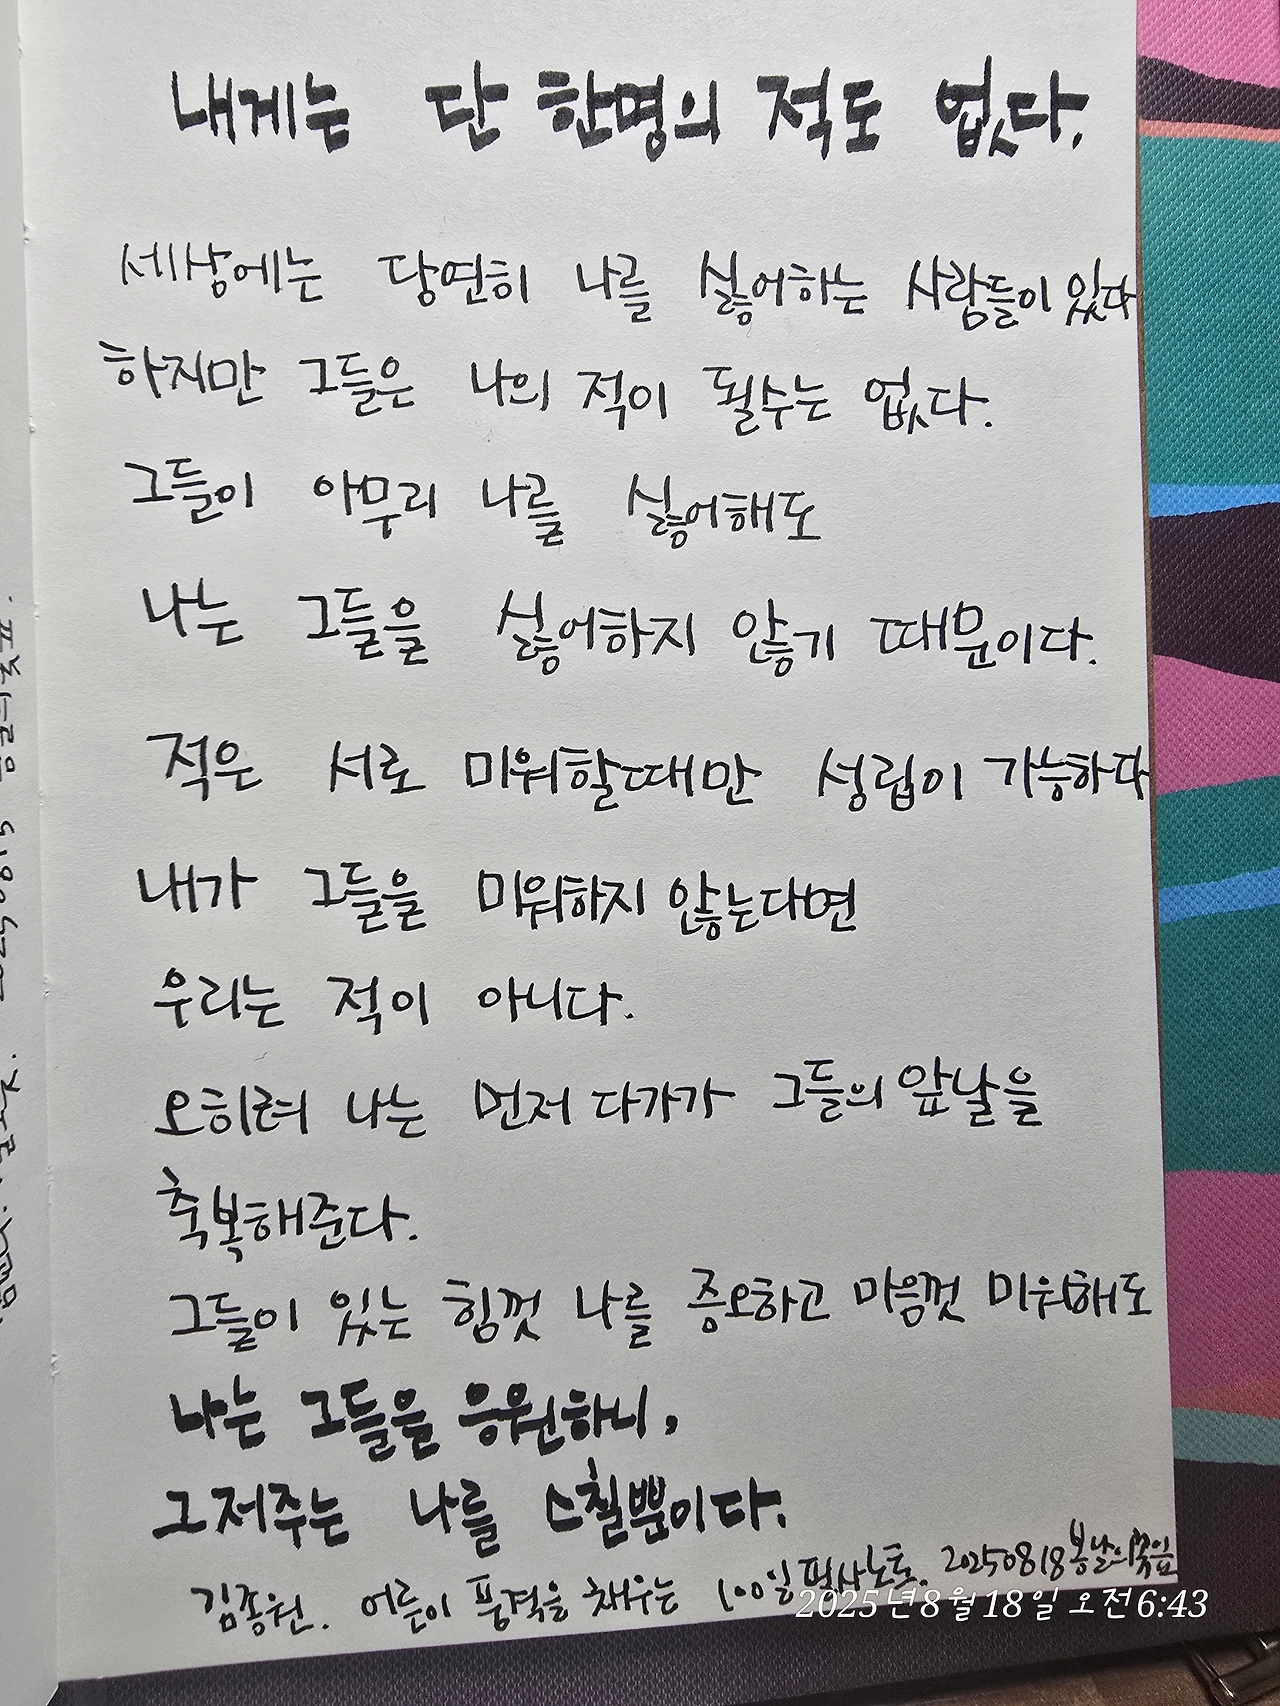 내게는 단 한명의 적도 없다.
세상에는 당연히 나를 싫어하는 사람들이 있다
하지만 그들은 나의 적이 될수는 없다.
그들이 아무리 나를 싫어해도
나는 그들을 싫어하지 않기 때문이다.
적은 서로 미워할때만 성립이 가능하다
내가 그들을 미워하지 않는다면
우리는 적이 아니다.
오히려 나는 먼저 다가가 그들의 앞날을
축복해준다.
그들이 있는 힘껏 나를 증오하고 마음껏 미워해도
나는 그들을 응원하니,
그저주는 나를 스칠뿐이다.
김종원. 어른이 품격을 채우는 100일 필사노트. 20250818 봄날의
2025년 8월 18일 오전 6:43